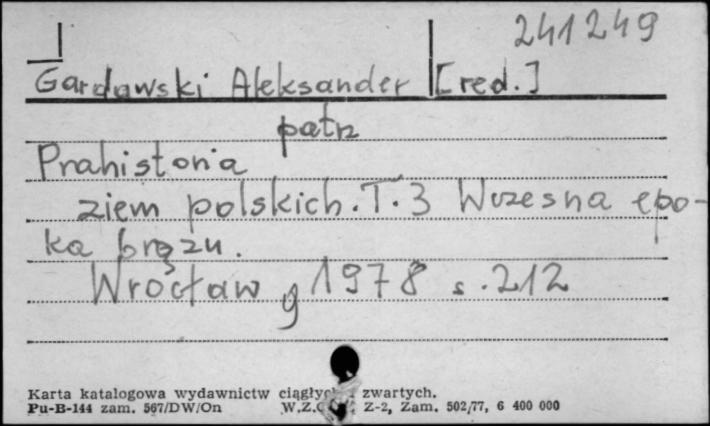 241249
Gardawski Aleksander [red.]
patrz
Prahistoria
ziem polskich. T. 3 Wczesna epo-
ka brązu.
Wrocław 1978 s. 212
Karta katalogowa wydawnictw zwartych.
Pu-B-144 zam. 567/DW/On W.Z. Z-2, Zam. 502/77, 6 400 000